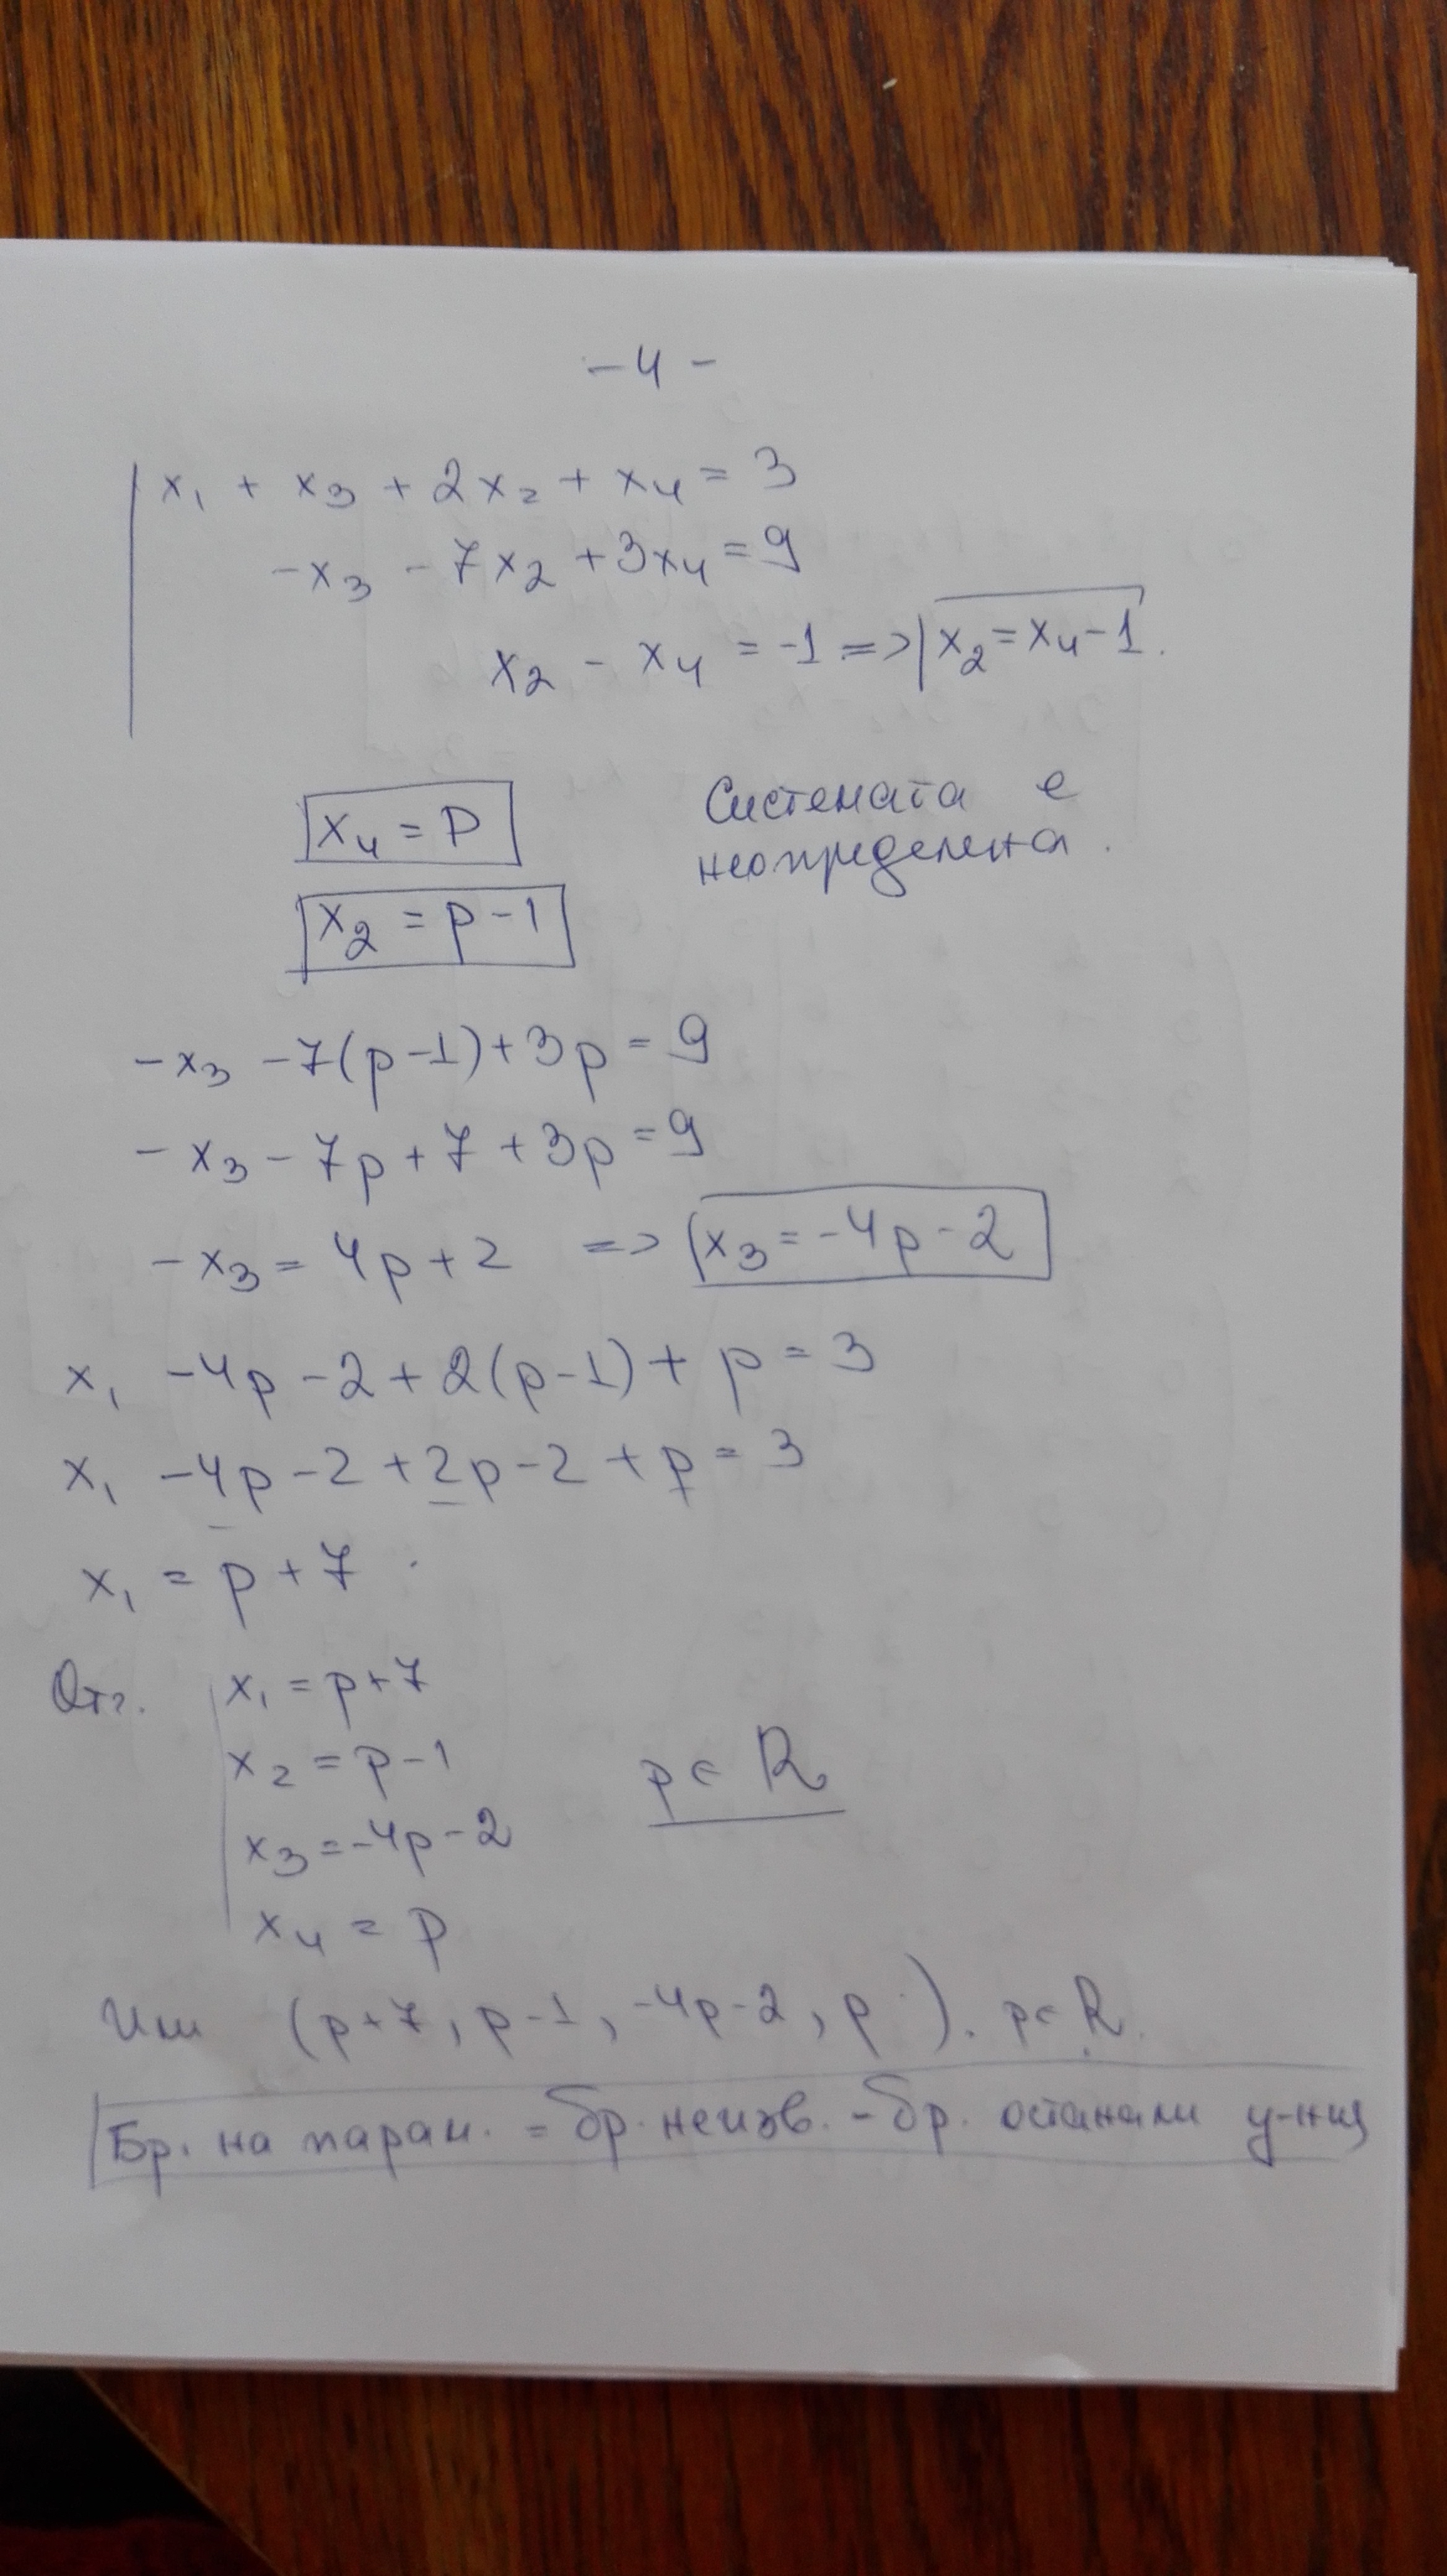 - 4 -
x₁ + x₃ + 2x₂ + x₄ = 3
-x₃ - 7x₂ + 3x₄ = 9
x₂ - x₄ = -1 => x₂ = x₄ - 1.
x₄ = p
Системата е
неопределена.
x₂ = p - 1
-x₃ - 7(p-1) + 3p = 9
-x₃ - 7p + 7 + 3p = 9
-x₃ = 4p + 2 => x₃ = -4p - 2
x₁ -4p - 2 + 2(p-1) + p = 3
x₁ -4p - 2 + 2p - 2 + p = 3
x₁ = p + 7
Отг. x₁ = p + 7
x₂ = p - 1
p ∈ R
x₃ = -4p - 2
x₄ = p
Или (p+7, p-1, -4p-2, p). p ∈ R.
Бр. на парам. = бр. неизв. - бр. останали у-ния